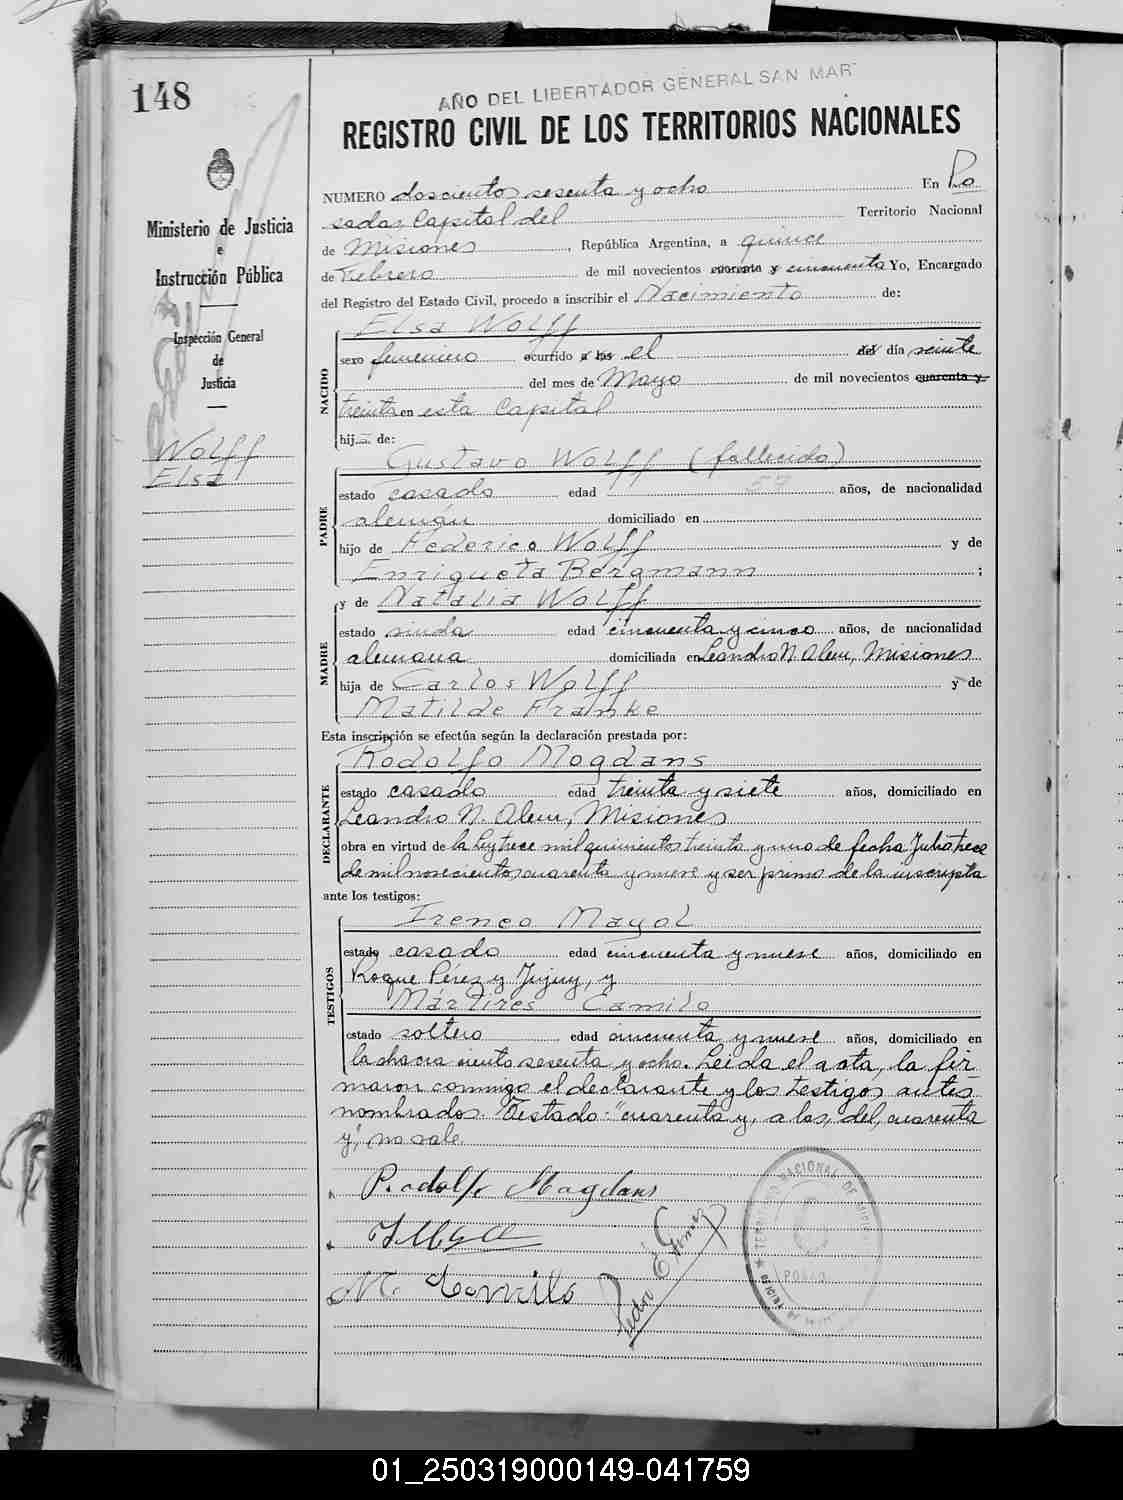 148
AÑO DEL LIBERTADOR GENERAL SAN MAR
REGISTRO CIVIL DE LOS TERRITORIOS NACIONALES
Ministerio de Justicia
e
Instrucción Pública
Inspección General
de
Justicia
Wolff
Elsa
NUMERO doscientos sesenta y ocho En Po
sadas Capital del Territorio Nacional
de Misiones, República Argentina, a quince
de Febrero de mil novecientos cuarenta y cincuenta Yo, Encargado
del Registro del Estado Civil, procedo a inscribir el Nacimiento de:
Elsa Wolff
NACIDO
sexo femenino ocurrido a los el del día veinte
del mes de Mayo de mil novecientos cuarenta y
treinta en esta Capital
hija de:
Gustavo Wolff (fallecido)
PADRE
estado casado edad 57 años, de nacionalidad
alemán domiciliado en
hijo de Federico Wolff y de
Enriqueta Bergmann ;
y de Natalia Wolff
MADRE
estado viuda edad cincuenta y cinco años, de nacionalidad
alemana domiciliada en Leandro N. Alem, Misiones
hija de Carlos Wolff y de
Matilde Franke
Esta inscripción se efectúa según la declaración prestada por:
Rodolfo Magdans
DECLARANTE
estado casado edad treinta y siete años, domiciliado en
Leandro N. Alem, Misiones
obra en virtud de la Ley trece mil quinientos treinta y uno de fecha Julio trece
de mil novecientos cuarenta y nueve y ser primo de la inscripta
ante los testigos:
Ireneo Mayol
TESTIGOS
estado casado edad cincuenta y nueve años, domiciliado en
Roque Pérez y Jujuy, y
Mártires Camilo
estado soltero edad cincuenta y nueve años, domiciliado en
la chacra ciento sesenta y ocho. Leída el acta, la fir
maron conmigo el declarante y los testigos antes
nombrados. Testado: "cuarenta y, a los, del, cuarenta
y", no vale.
Rodolfo Magdans
M. Camilo
TERRITORIO NACIONAL DE MISIONES
01_250319000149-041759